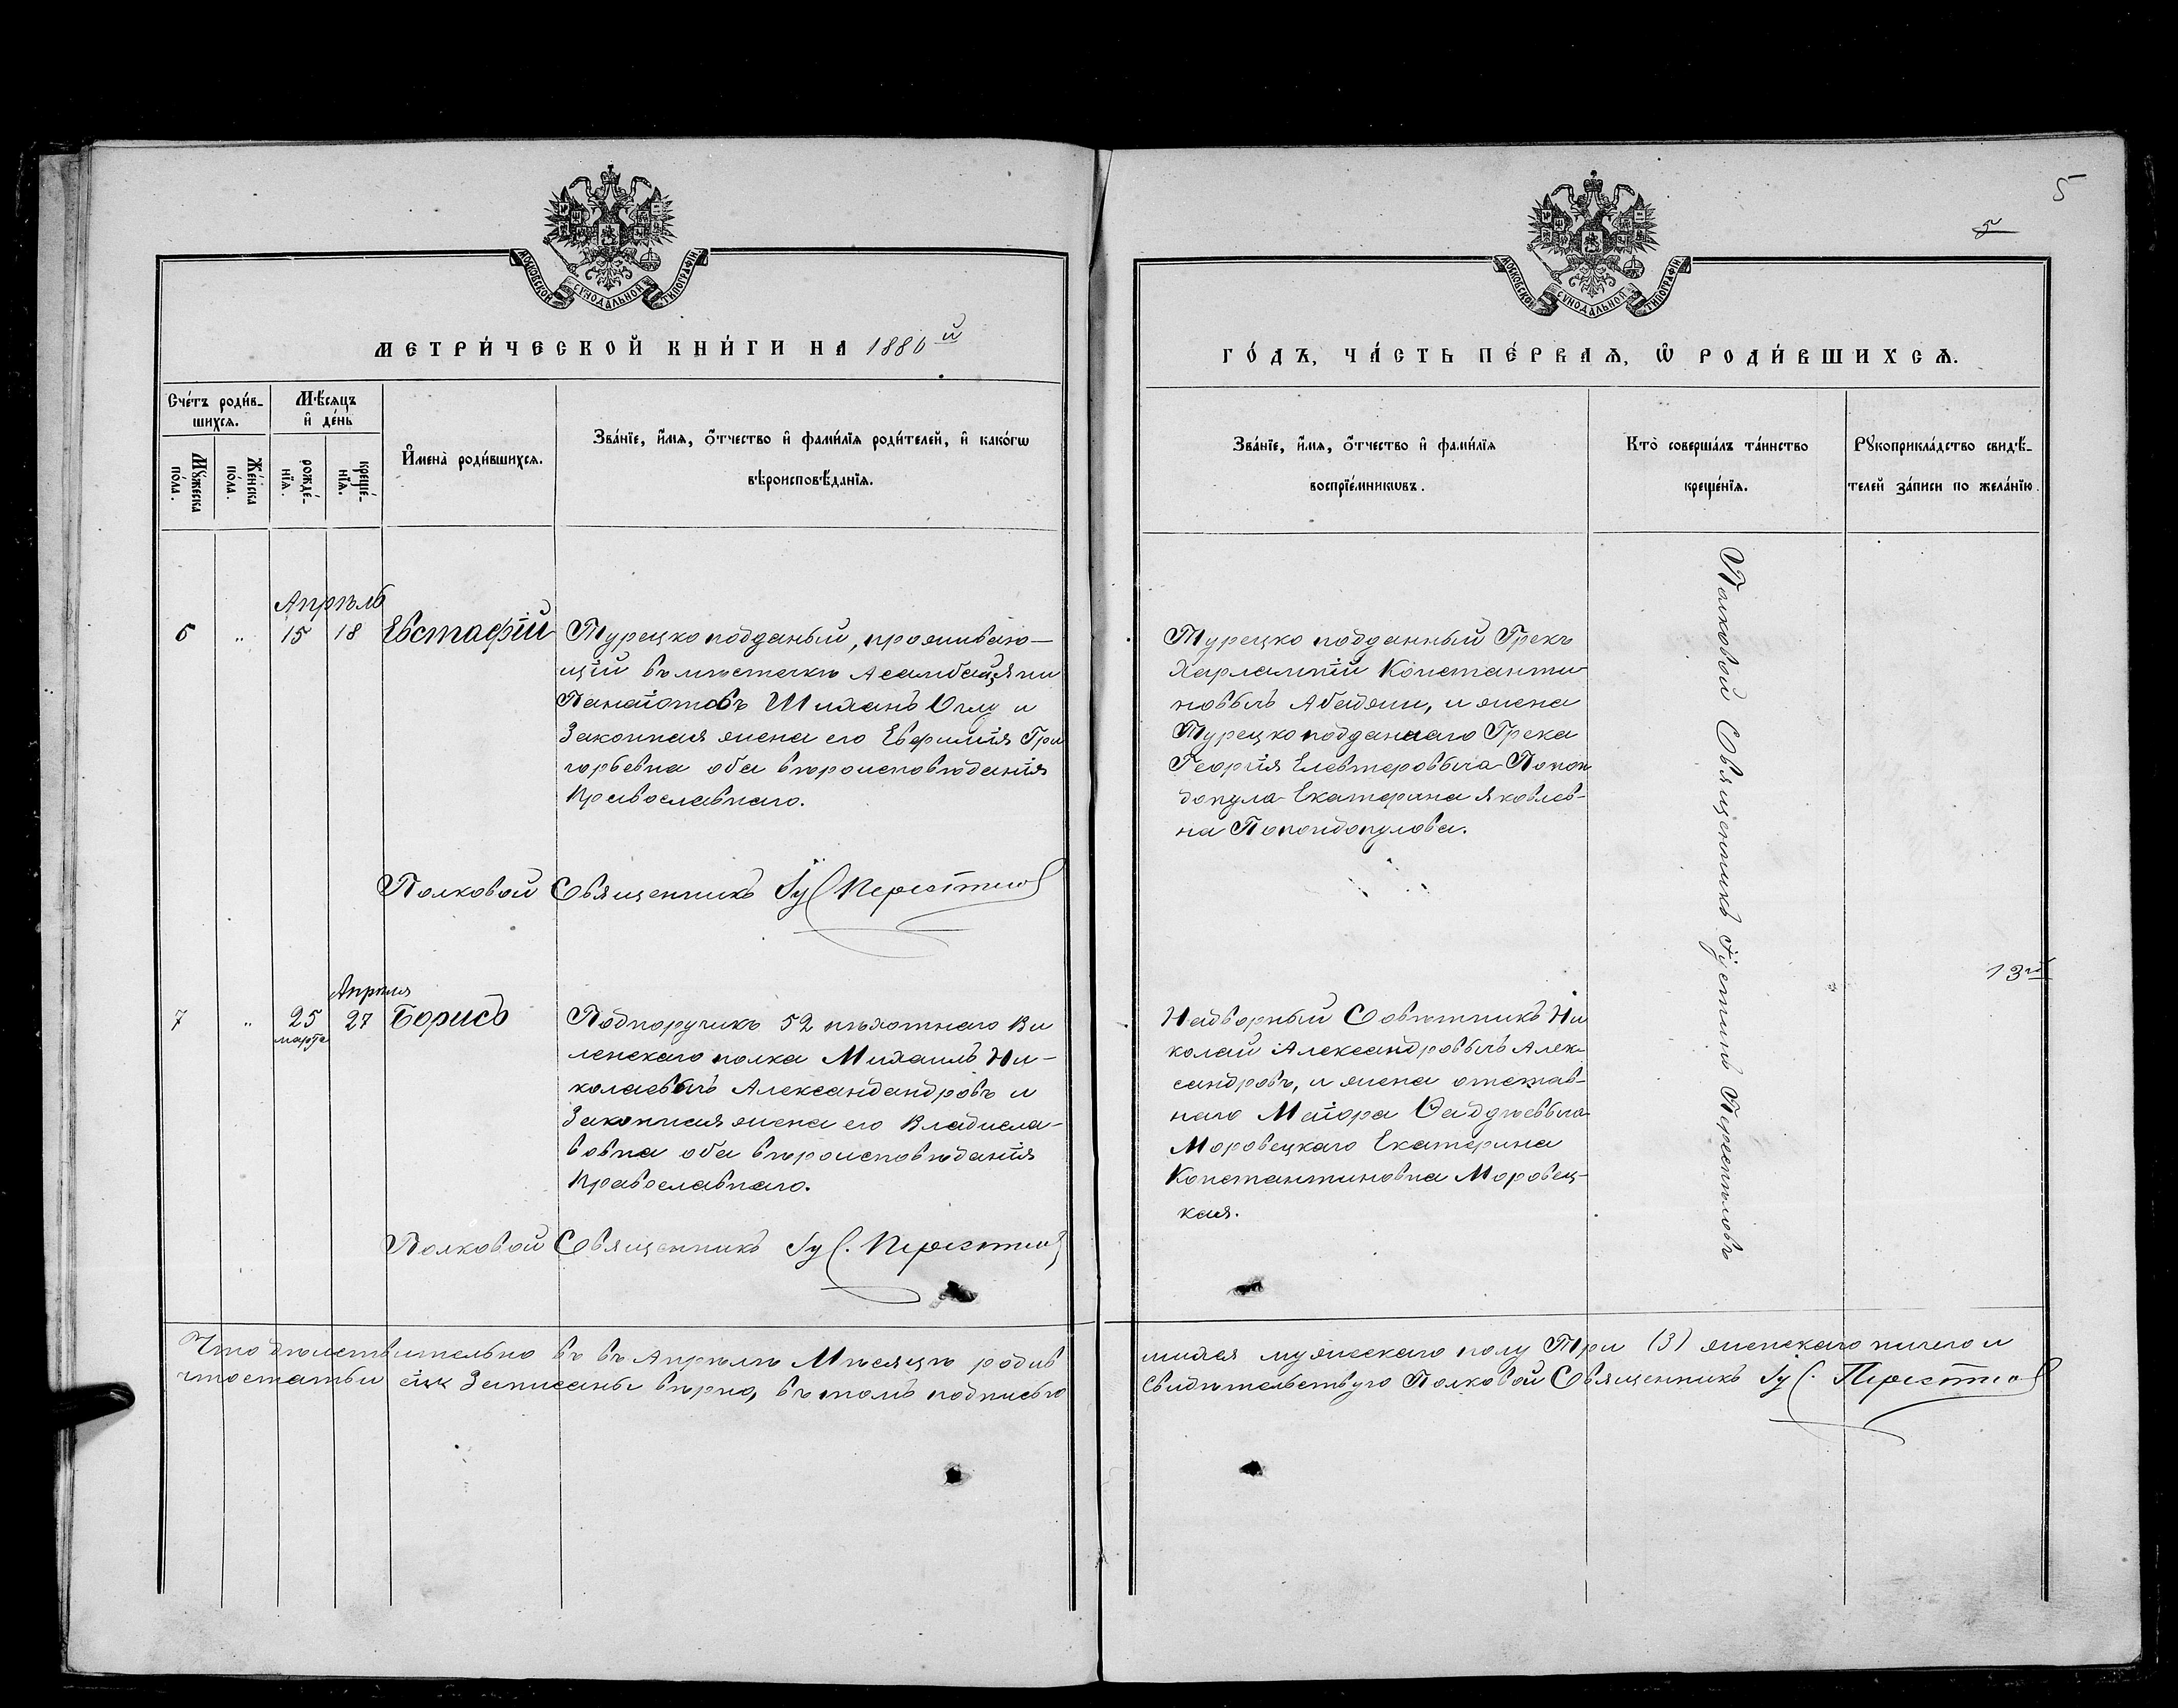 5
5
МОСКОВСКОЙ СѴНОДАЛЬНОЙ ТИПОГРАФІИ
МЕТРИ́ЧЕСКОЙ КНИ́ГИ НА 1880й
Сче́тъ роди́в-
шихсѧ.
Мѣ́сѧцъ
и҆ де́нь
Мꙋ́жеска
по́ла.
Же́нска
по́ла.
рожде́-
нїѧ.
креще́-
нїѧ.
И҆мена̀ роди́вшихсѧ.
Зва́нїе, и҆́мѧ, ѻ҆́тчество и҆ фами́лїѧ роди́телей, и҆ како́гѡ
вѣроисповѣ́данїѧ.
Апрѣль
6 " 15 18 Евстафій
Турецко подданый, проживаю-
щій въ мѣстечкѣ Асамбай, Яни
Панаіотовъ Шиханъ Оглу и
Законная жена его Евфимія Гри
горьевна оба вѣроисповѣданія
Православнаго.
Полковой Священникъ Іус
Апрѣля
7 " 25 27 Борисъ
марта
Подпоручикъ 52 пѣхотнаго Ви
ленскаго полка Михаилъ Ни-
колаевичъ Александандровъ и
Законная жена его Владисла-
вовна оба вѣроисповѣданія
Православнаго.
Полковой Священникъ Іус.
Что дѣйствительно въ въ Апрѣлѣ Мѣсяцѣ родив
что статьи сіи Записаны вѣрно, въ томъ подписью
МОСКОВСКОЙ СѴНОДАЛЬНОЙ ТИПОГРАФІИ
ГО́ДЪ, ЧА́СТЬ ПЕ́РВАѦ, Ѽ РОДИ́ВШИХСѦ.
Зва́нїе, и҆́мѧ, ѻ҆́тчество и҆ фами́лїѧ
воспрїе́мникѡвъ.
Кто̀ соверша́лъ та́инство
креще́нїѧ.
Рꙋкоприкла́дство свидѣ́-
телей за́писи по жела́нїю.
Турецко подданный Грекъ
Харлампій Константи
новичъ Абаджи, и жена
Турецко подданаго Грека
Георгія Елевтеровича Попон
допула Екатерина Яковлев-
на Попондопулова.
Полковой Священникъ Іустинъ Перепеловъ
13й
Надворный Совѣтникъ Ни
колай Александровичъ Алек-
сандровъ, и жена отстав-
наго Маіора Фаддѣевича
Моровецкаго Екатерина
Константиновна Моровец-
кая.
шихся мужескаго полу Три (3) женскаго ничего и
Свидѣтельствую Полковой Священникъ Іус.